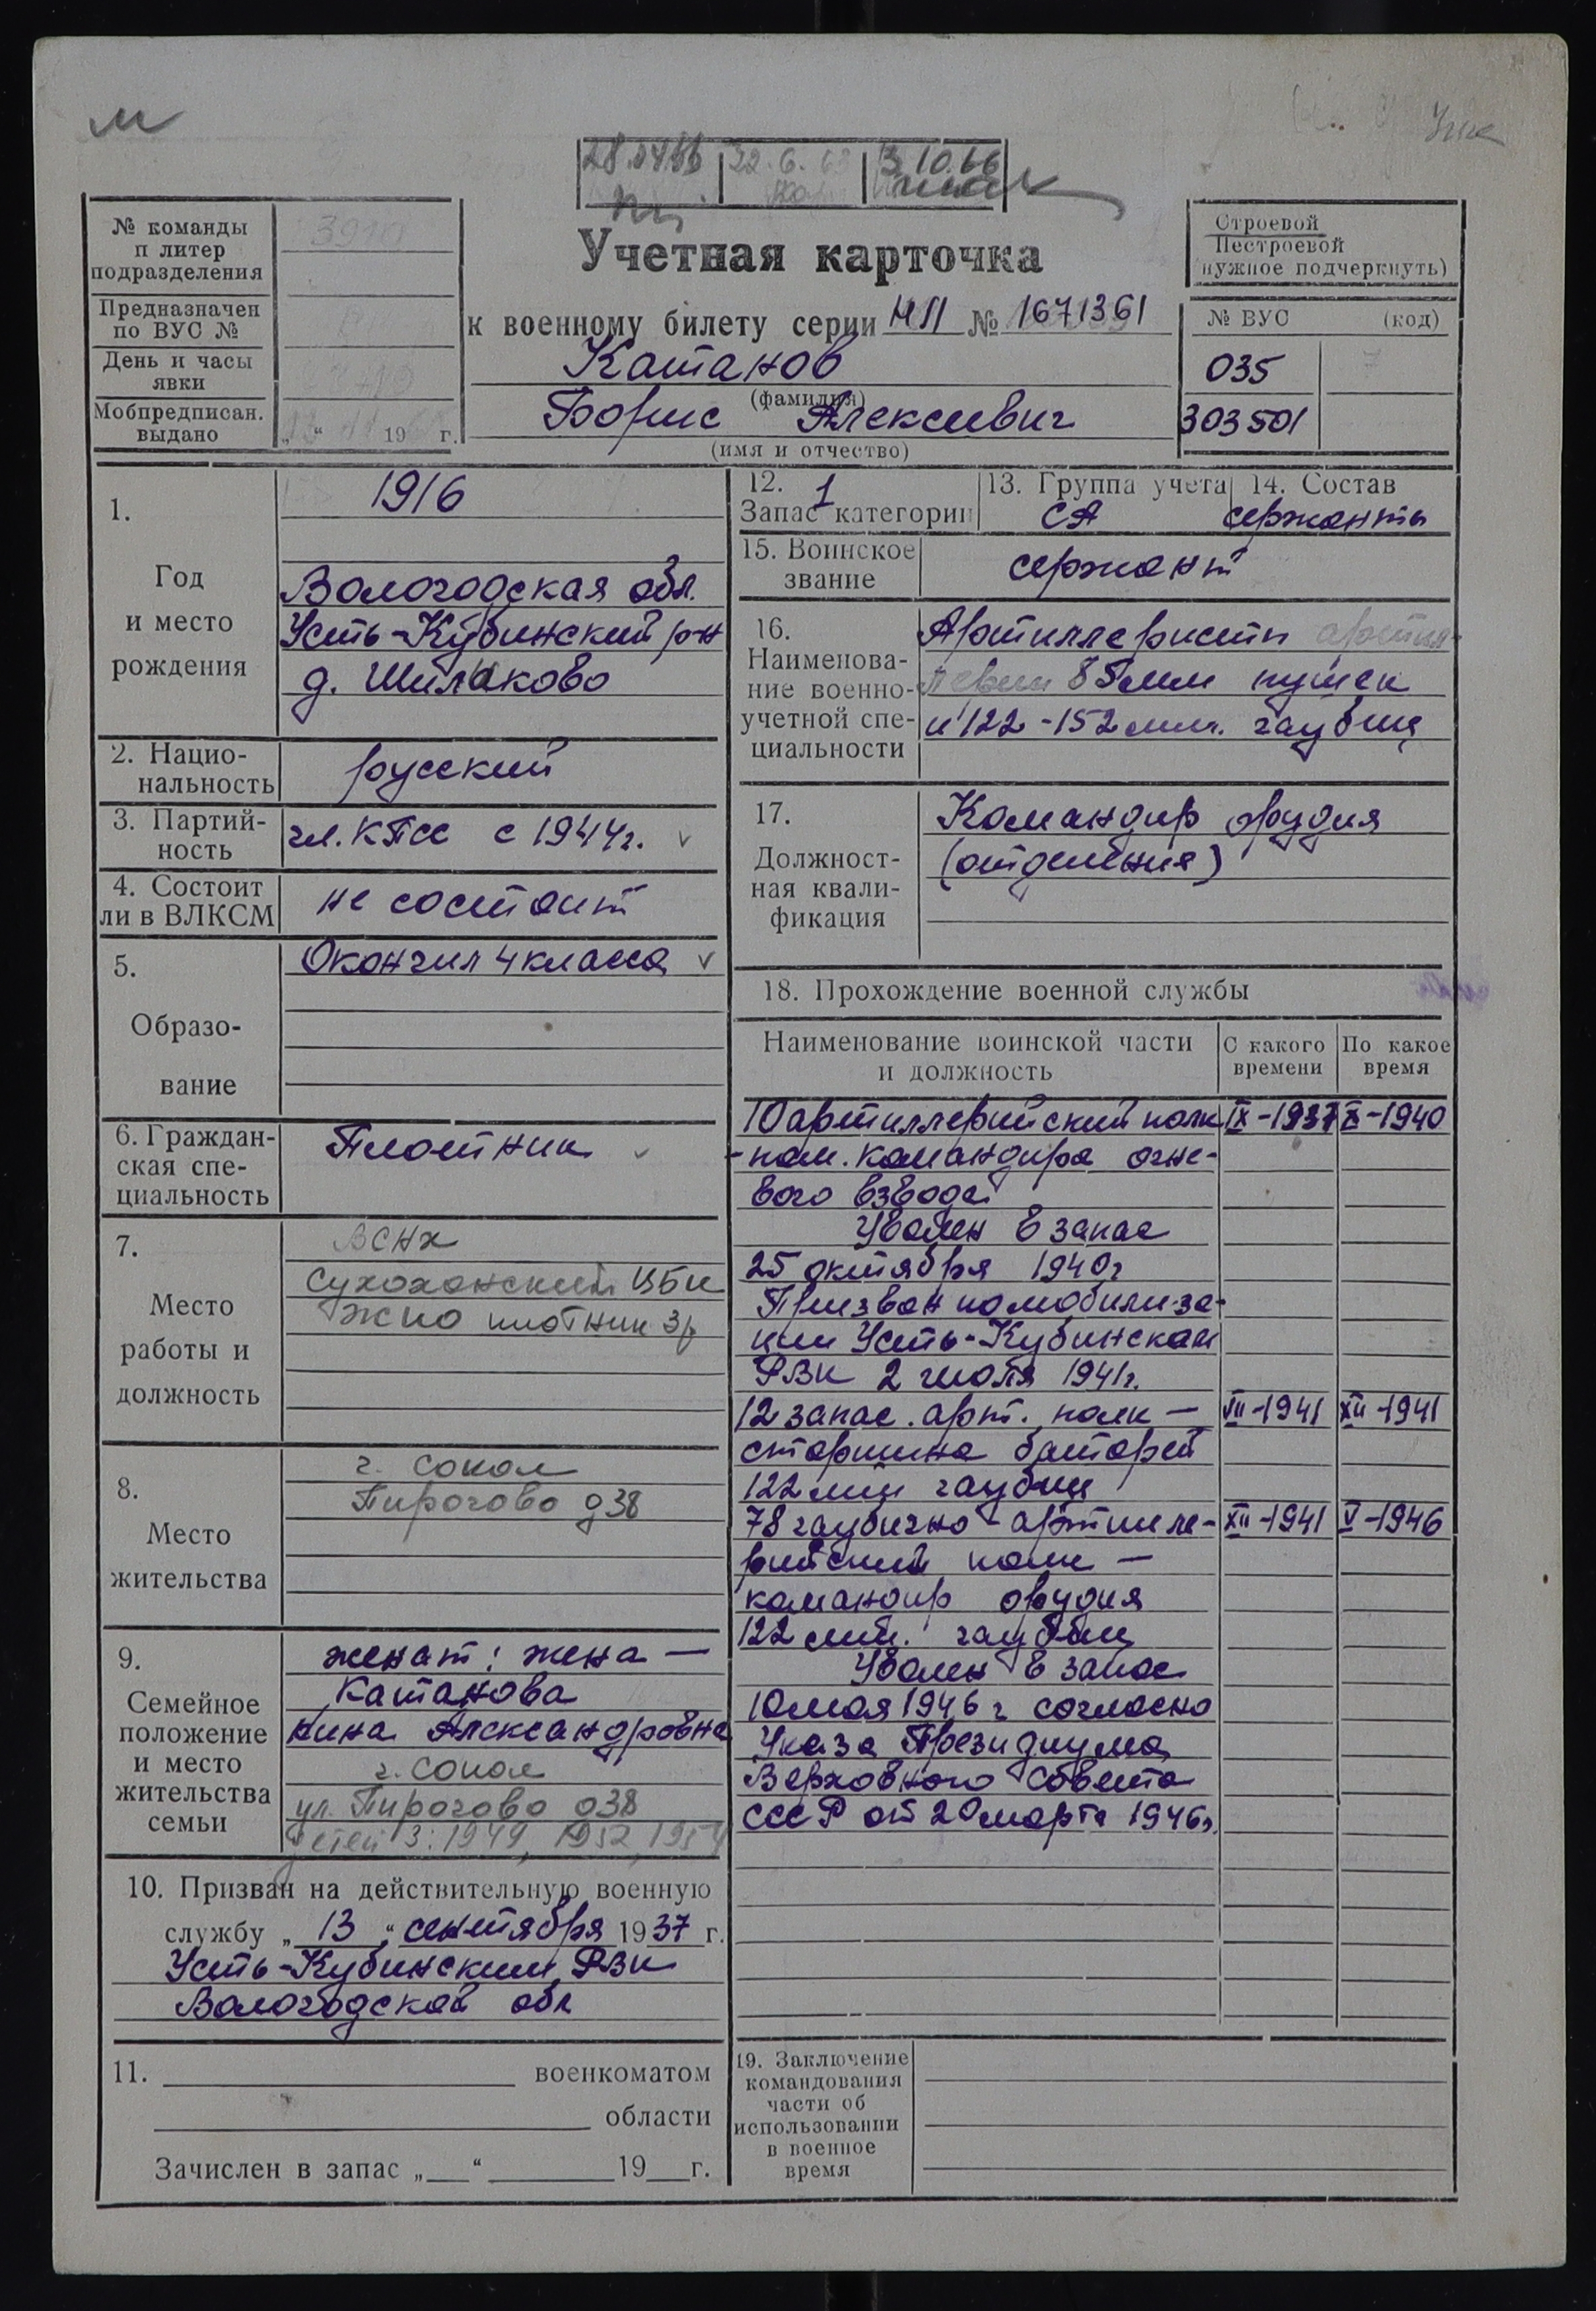 м
28.
22.6.63
3.10.66
№ команды
п литер
подразделения
Предназначен
по ВУС №
День и часы
явки
Мобпредписан.
выдано
„ “ 19 г.
Учетная карточка
к военному билету серии НП № 1671361
Катанов
(фамилия)
Борис Алексеевич
(имя и отчество)
Строевой
Нестроевой
(нужное подчеркнуть)
№ ВУС (код)
035 7
303501
1.
Год
и место
рождения
1916
Вологодская обл.
Усть-Кубинский р-н
д. Шилыково
2. Нацио-
нальность
русский
3. Партий-
ность
чл. КПСС с 1944г.
4. Состоит
ли в ВЛКСМ
не состоит
5.
Образо-
вание
Окончил 4 класса
6. Граждан-
ская спе-
циальность
Плотник
7.
Место
работы и
должность
ВСНХ
Сухонский ЦБК
ЖКО плотник 3р
8.
Место
жительства
г. Сокол
Пирогово д38
9.
Семейное
положение
и место
жительства
семьи
женат: жена —
Катанова
Нина Александровна
г. Сокол
ул. Пирогово д38
детей 3: 1949, 1952, 1954
10. Призван на действительную военную
службу „13“ сентября 1937 г.
Усть-Кубинским РВК
Вологодской обл
11. военкоматом
области
Зачислен в запас „ “ 19 г.
12. 1
Запас категории
13. Группа учета
СА
14. Состав
сержанты
15. Воинское
звание
сержант
16.
Наименова-
ние военно-
учетной спе-
циальности
Артиллеристы
85мм пушек
и 122-152мм. гаубиц
17.
Должност-
ная квали-
фикация
Командир орудия
(отделения)
18. Прохождение военной службы
Наименование воинской части
и должность
С какого
времени
По какое
время
10 артиллерийский полк IX-1937 X-1940
-пом. командира огне-
вого взвода
Уволен в запас
25 октября 1940г
Призван по мобилиза-
ции Усть-Кубинским
РВК 2 июля 1941г.
12 запас. арт. полк — VII-1941 XII-1941
старшина батареи
122 мм гаубиц
78 гаубично-артилле- XII-1941 V-1946
рийский полк —
командир орудия
122 мм. гаубиц
Уволен в запас
10 мая 1946г согласно
Указа Президиума
Верховного Совета
СССР от 20 марта 1946г.
19. Заключение
командования
части об
использовании
в военное
время